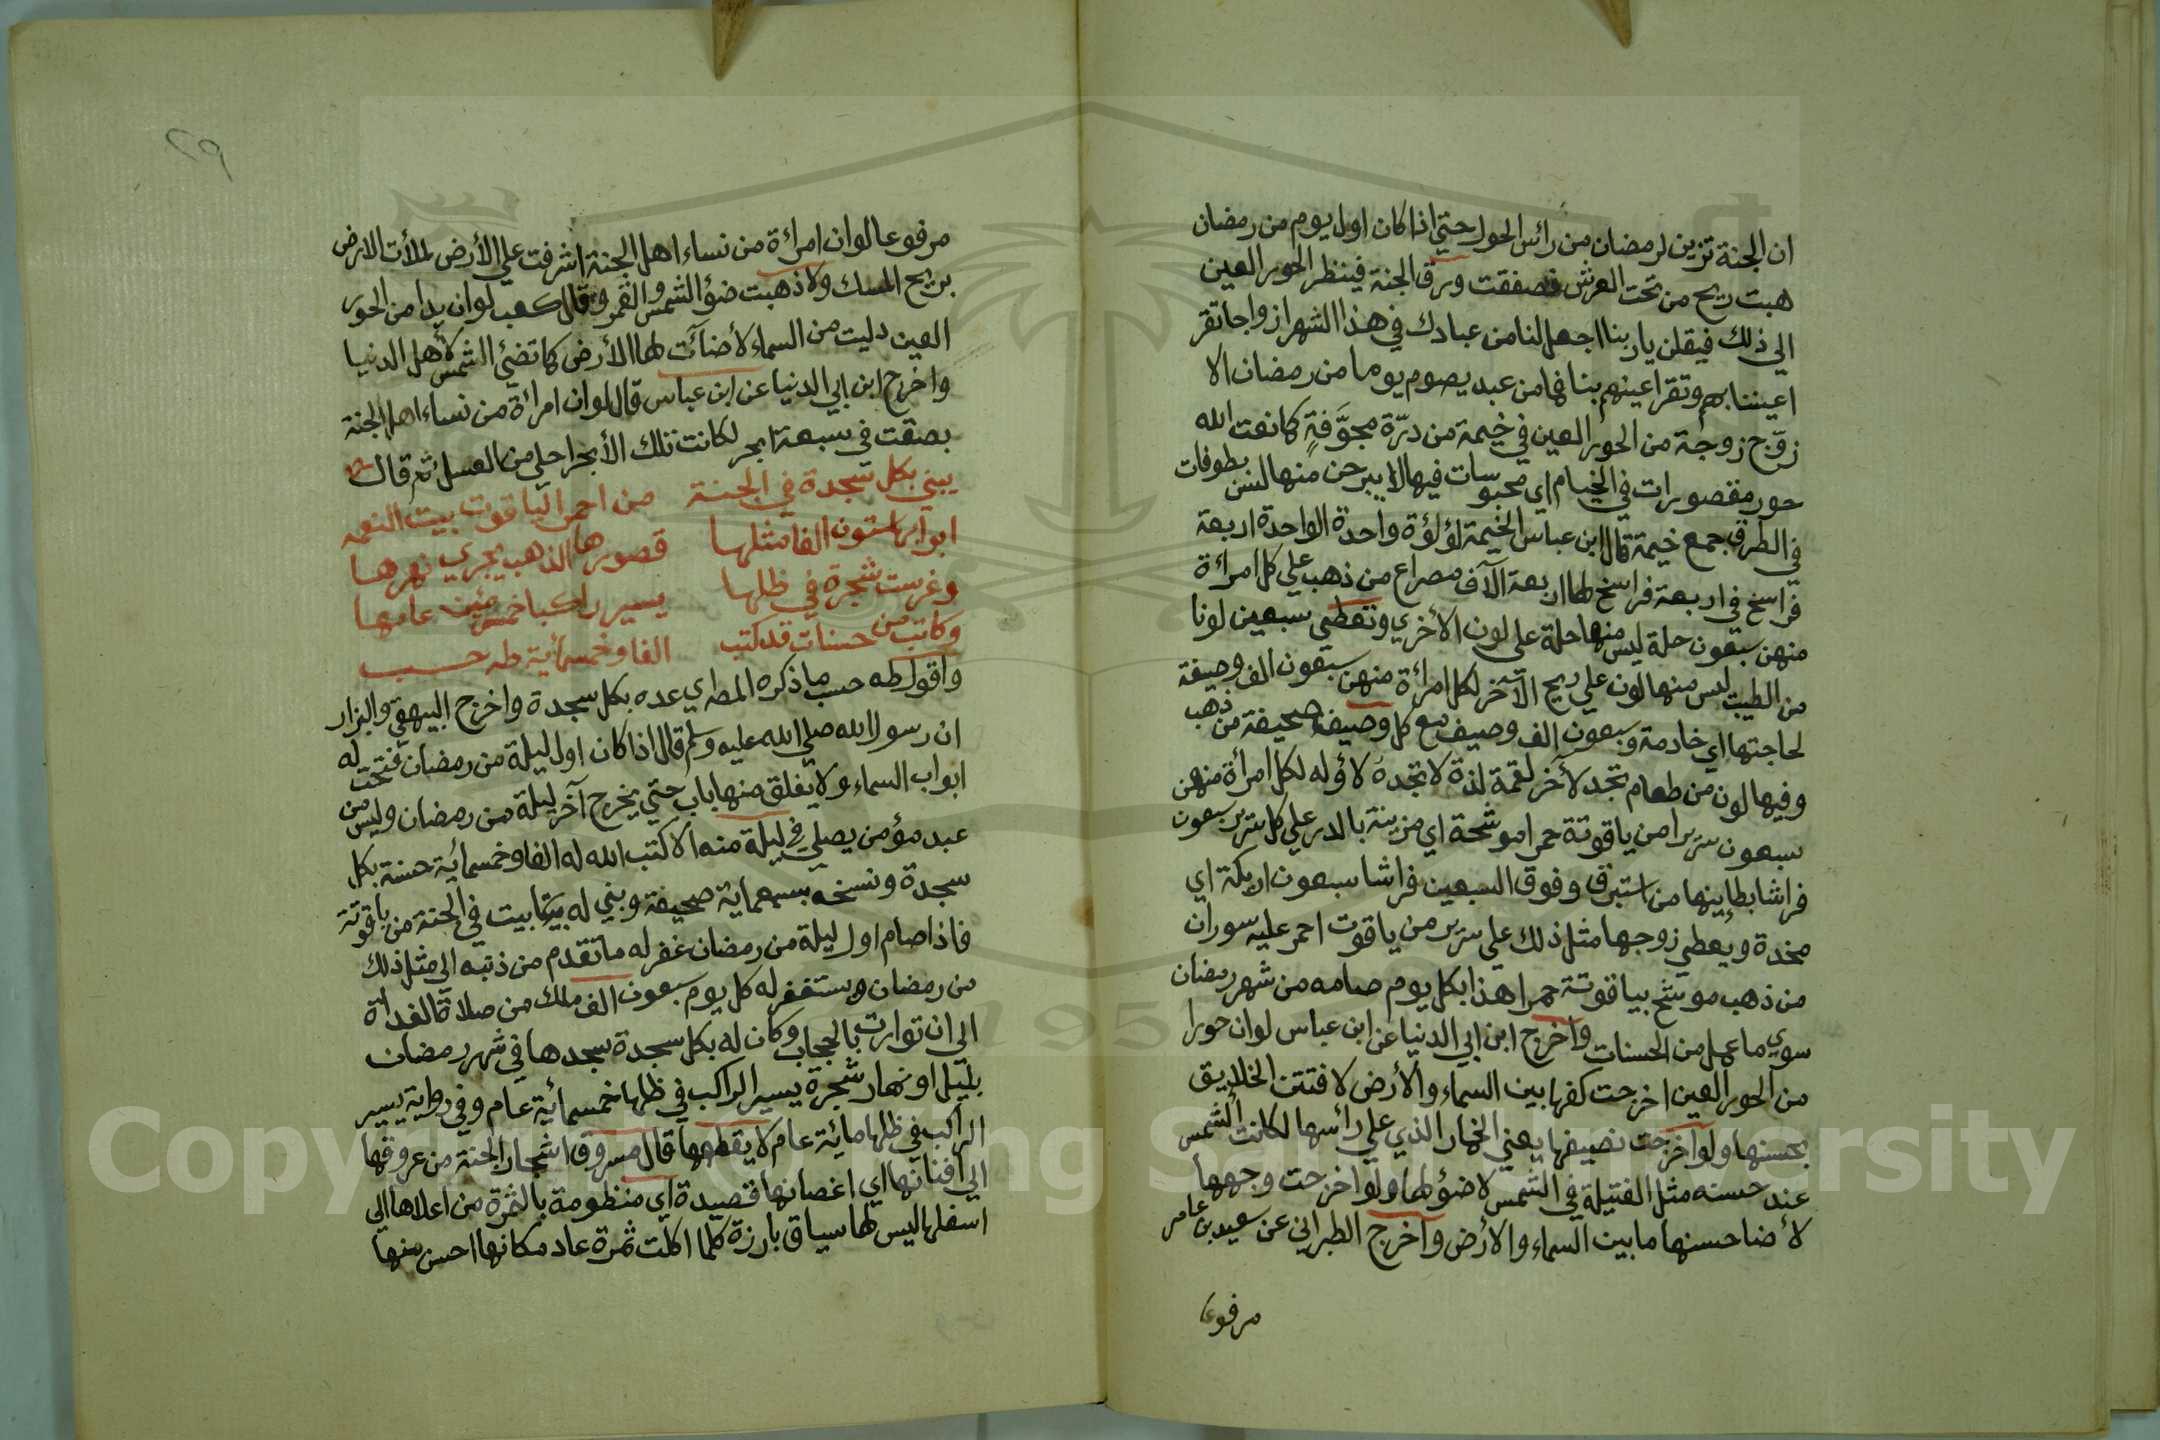 ان الجنة تزين لرمضان من رائس الحول حتي اذا كان اول يوم من رمضان
هبت ريح من تحت العرش فصفقت ورق الجنة فينظر الحور العين
الي ذلك فيقلن يا ربنا اجعل لنا من عبادك في هذا الشهر ازواجا تقر
اعيننا بهم وتقر اعينهم بنا فما من عبد يصوم يوما من رمضان الا
زوج زوجة من الحور العين في خيمة من درّة مجوَّفةٍ كما نعت الله
حور مقصورات في الخيام اي محبوسات فيها لا يبرحن منها لسن بطوفات
في الطرق جمع خيمة قال ابن عباس الخيمة لؤلؤة واحدة الواحدة اربعة
فراسخ في اربعة فراسخ لها اربعة آلآف مصراع من ذهب علي كل امرأة
منهن سبعون حلة ليس منها حلة علي لون الأخري وتعطي سبعين لونا
من الطيب ليس منها لون علي ريح الآخر لكل امرأة منهن سبعون الف وصيفة
لحاجتها اي خادمة وسبعون الف وصيف مع كل وصيفة صحيفة من ذهب
وفيها لون من طعام تجد لآخر لقمة لذة لا تجده لاؤله لكل امرأة منهن
سبعون سريرا من ياقوتة حمرا موشحة اي مزينة بالدر علي كل سرير سبعون
فراشا بطاينها من استبرق وفوق السبعين فراشا سبعون اريكة اي
مخدة ويعطي زوجها مثل ذلك علي سرير من ياقوت احمر عليه سوران
من ذهب موشح بياقوتة حمرا هذا بكل يوم صامه من شهر رمضان
سوي ما عمل من الحسنات واخرج ابن ابي الدنيا عن ابن عباس لو ان حورا
من الحور العين اخرجت كفها بين السماء والأرض لافتتن الخلايق
بحسنها ولو اخرجت نصيفها يعني الخمار الذي علي رائسها لكانت الشمس
عند حسنه مثل الفتيلة في الشمس لا ضؤ لها ولو اخرجت وجهها
لأضا حسنها ما بين السماء والأرض واخرج الطبراني عن سعيد بن عامر
مرفوعا
٢٩
مرفوعا لو ان امرأة من نساء اهل الجنة اشرفت علي الأرض لملأت الارض
بريح المسك ولاذهبت ضؤ الشمس والقمر وقال كعب لو ان يدا من الحور
العين دليت من السماء لأضآئت لها الأرض كما تضئ الشمس لأهل الدنيا
واخرج ابن ابي الدنيا عن ابن عباس قال لو ان امرأة من نساء اهل الجنة
بصقت في سبعة ابحر لكانت تلك الأبحر احلي من العسل ثم قال
يبني بكل سجدة في الجنة من احمر الياقوت بيت النعمه
ابوابه ستون الفا مثلها قصورها الذهب يجري نهرها
وغرست شجرة في ظلها يسير راكبا خمس مئين عامها
وكاتب من حسنات قد كتب الفا وخمسمائية طه حسب
واقول طه حسب ما ذكره المط اي عده بكل سجدة واخرج البيهقي والبزار
ان رسول الله صلي الله عليه وسلم قال اذا كان اول ليلة من رمضان فتحت له
ابواب السماء ولا يغلق منها باب حتي يخرج آخر ليلة من رمضان وليس من
عبد مؤمن يصلي في ليلة منه الا كتب الله له الفا وخمسمائية حسنة بكل
سجدة ونسخه بسبعماية صحيفة وبني له بيتا بيت في الجنة من ياقوتة
فاذا صام اول ليلة من رمضان غفر له ما تقدم من ذنبه الي مثل ذلك
من رمضان ويستغفر له كل يوم سبعون الف ملك من صلاة الغداة
الي ان توارت بالحجاب وكان له بكل سجدة سجدها في شهر رمضان
بليل او نهار شجرة يسير الراكب في ظلها خمسمائية عام وفي رواية يسير
الراكب في ظلها مائية عام لا يقطعها قال مسروق اشجار الجنة من عروقها
الي افنانها اي اغصانها قصيدة اي منظومة بالثمرة من اعلاها الي
اسفلها ليس لها سياق بارزة كلما اكلت ثمرة عاد مكانها احسن منها